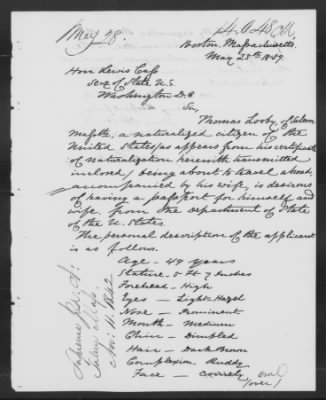 May 28.
Boston, Massachusetts.
May 28th 1859.
Hon Lewis Cass
Secy of State U.S.
Washington D.C
Sir,
Thomas Looby, of Salem
Massts, a naturalized citizen of the
United States (as appears from his certificate
of naturalization herewith transmitted
inclosed) being about to travel abroad,
accompanied by his wife, is desirous
of having a passport for himself and
wife, from the Department of State
of the U. States.
The personal description of the applicant
is as follows.
Age - 49 years
Stature - 5 Ft 7 Inches
Forehead - High
Eyes - Light Hazel
Nose - Prominent
Mouth - Medium
Chin - Dimpled
Hair - Dark Brown
Complexion - Ruddy
Face - oval
(over)
Salem, Mass.
Nov. 11. 1842